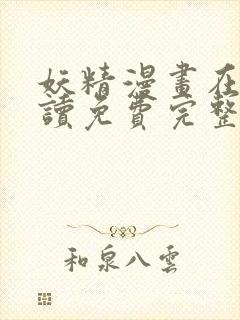 妖精漫畫在
讀免費完整
和泉八雲